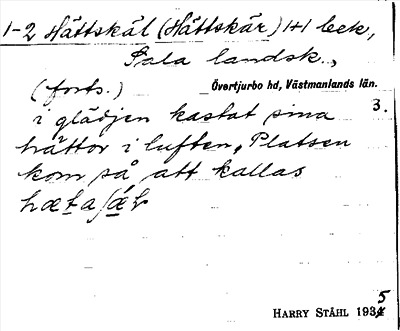 1-2 Hättskäl (Hättskär) 1+1 beb.,
Sala landsk.,
(forts.) Övertjurbo hd, Västmanlands län.
3.
i glädjen kastat sina
hättor i luften. Platsen
kom så att kallas
HARRY STÅHL 1935